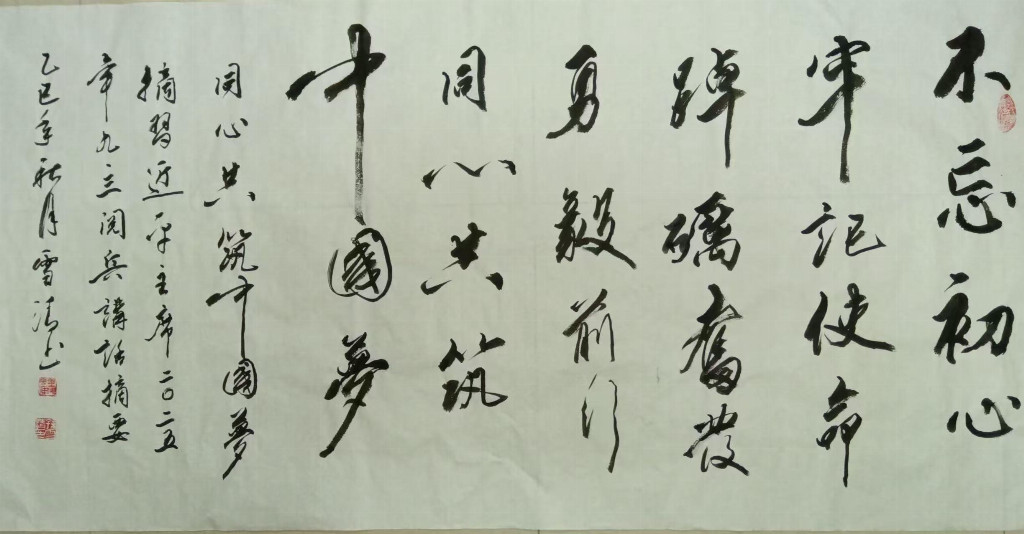 不忘初心
牢记使命
踔礪奮發
勇毅前行
同心共筑
中國夢
同心共筑中國夢
摘習近平主席二〇二五
年九三阅兵講話摘要
乙巳年秋月雪清书